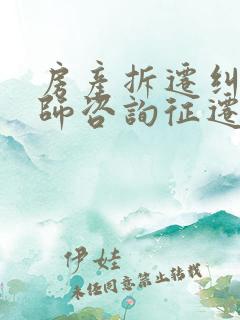 房產拆遷纠
師咨詢征遷
伊娃
未经同意禁止转载